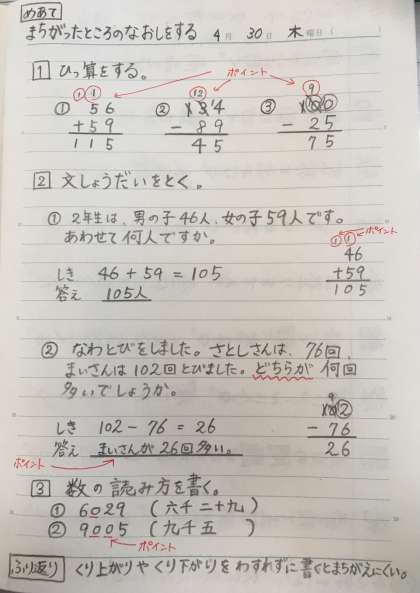 めあて
まちがったところのなおしをする 4月30日 木曜日(
1 ひっ算をする。 ポイント
1 1 12 9
① 56 ② 134 ③ 100
+59 − 89 − 25
115 45 75
2 文しょうだいをとく。
① 2年生は、男の子46人、女の子59人です。
あわせて何人ですか。 ポイント
1 1
46
しき 46+59=105 +59
答え 105人 105
② なわとびをしました。さとしさんは、76回、
まいさんは102回とびました。どちらが何回
多いでしょうか。
9
102
しき 102−76=26 −76
答え まいさんが26回多い。 26
ポイント
3 数の読み方を書く。
① 6029 (六千二十九)
② 9005 (九千五 )
ポイント
ふり返り くり上がりやくり下がりをわすれずに書くとまちがえにくい。